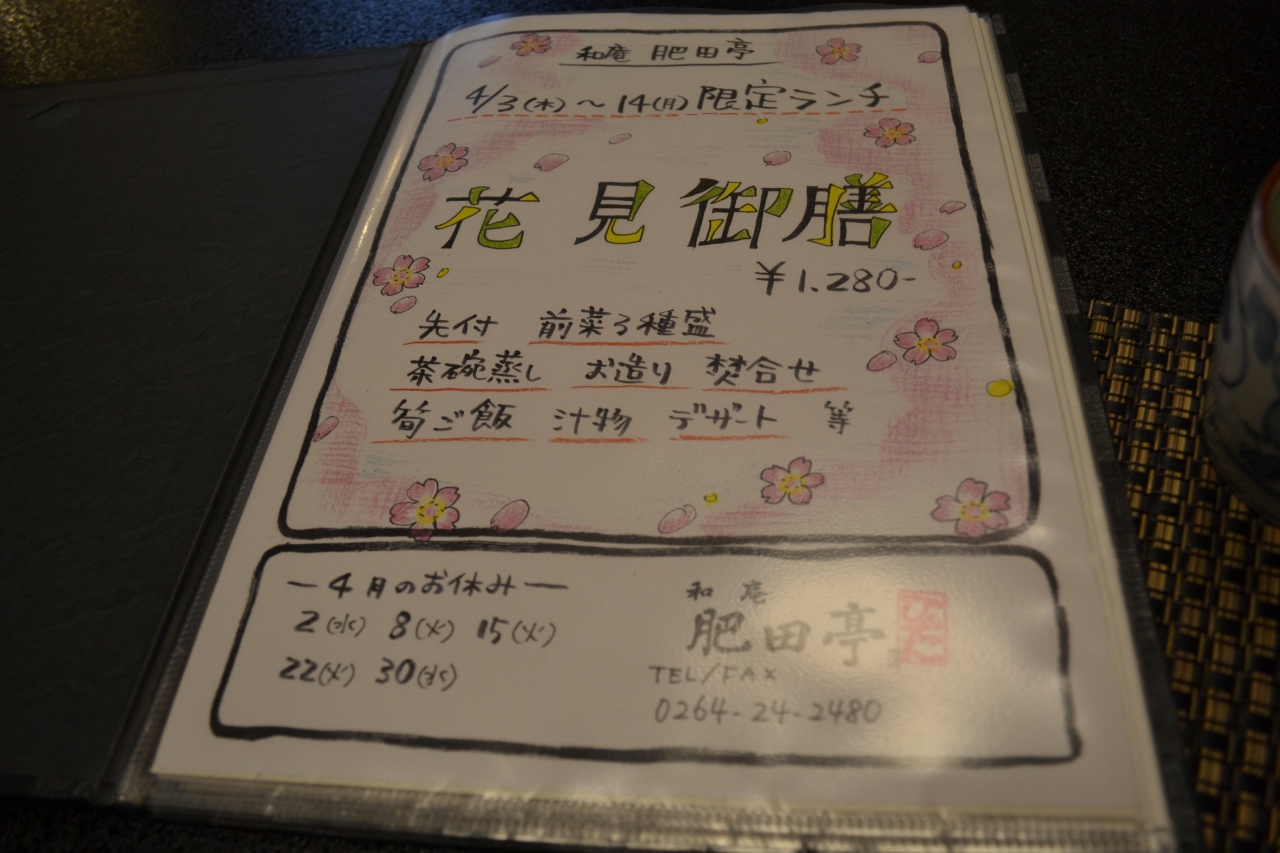 和庵 肥田亭
4/3(木)～14(月)限定ランチ
花見御膳
¥1.280-
先付 前菜3種盛
茶碗蒸し お造り 焚合せ
筍ご飯 汁物 デザート 等
ー4月のお休みー
2(水) 8(火) 15(火)
22(火) 30(水)
和庵
肥田亭
ひだ
TEL/FAX
0264-24-2480